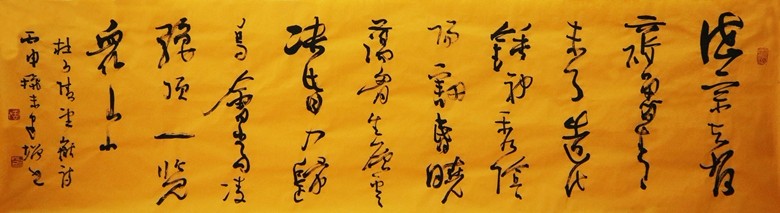 岱宗夫如何
齊魯青
未了造化
鍾神秀陰
陽割昏曉
蕩胸生層雲
決眥入歸
鳥會當凌
絕頂一覽
眾山小
杜少陵望嶽詩
丙申